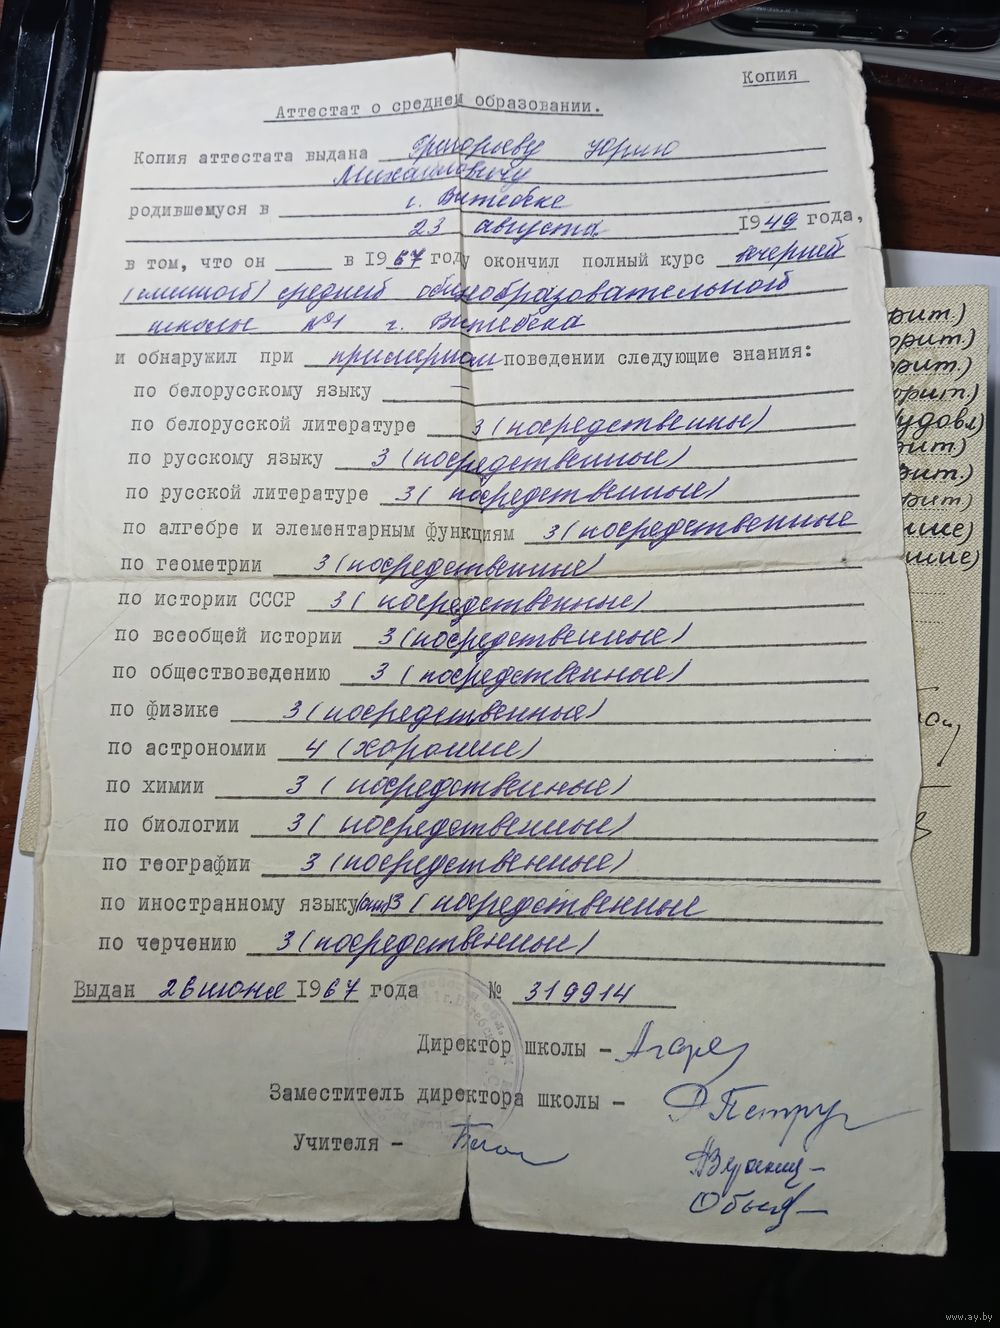 Копия
Аттестат о среднем образовании.
Копия аттестата выдана Григорьеву Юрию
Михайловичу
родившемуся в г. Витебске
23 августа 1949 года,
в том, что он в 1967 году окончил полный курс вечерней
(сменной) средней общеобразовательной
школы №1 г. Витебска
и обнаружил при примерном поведении следующие знания:
по белорусскому языку —
по белорусской литературе 3 (посредственны)
по русскому языку 3 (посредственные)
по русской литературе 3 (посредственные)
по алгебре и элементарным функциям 3 (посредственные
по геометрии 3 (посредственные)
по истории СССР 3 (посредственные)
по всеобщей истории 3 (посредственные)
по обществоведению 3 (посредственные)
по физике 3 (посредственные)
по астрономии 4 (хорошие)
по химии 3 (посредственные)
по биологии 3 (посредственные)
по географии 3 (посредственные)
по иностранному языку 3 (посредственные
по черчению 3 (посредственные)
Выдан 26 июня 1967 года № 319914
Директор школы –
Заместитель директора школы –
Учителя –
рит.)
орит.)
рит.)
орит.)
удовл)
рит.)
рит)
www.ay.by